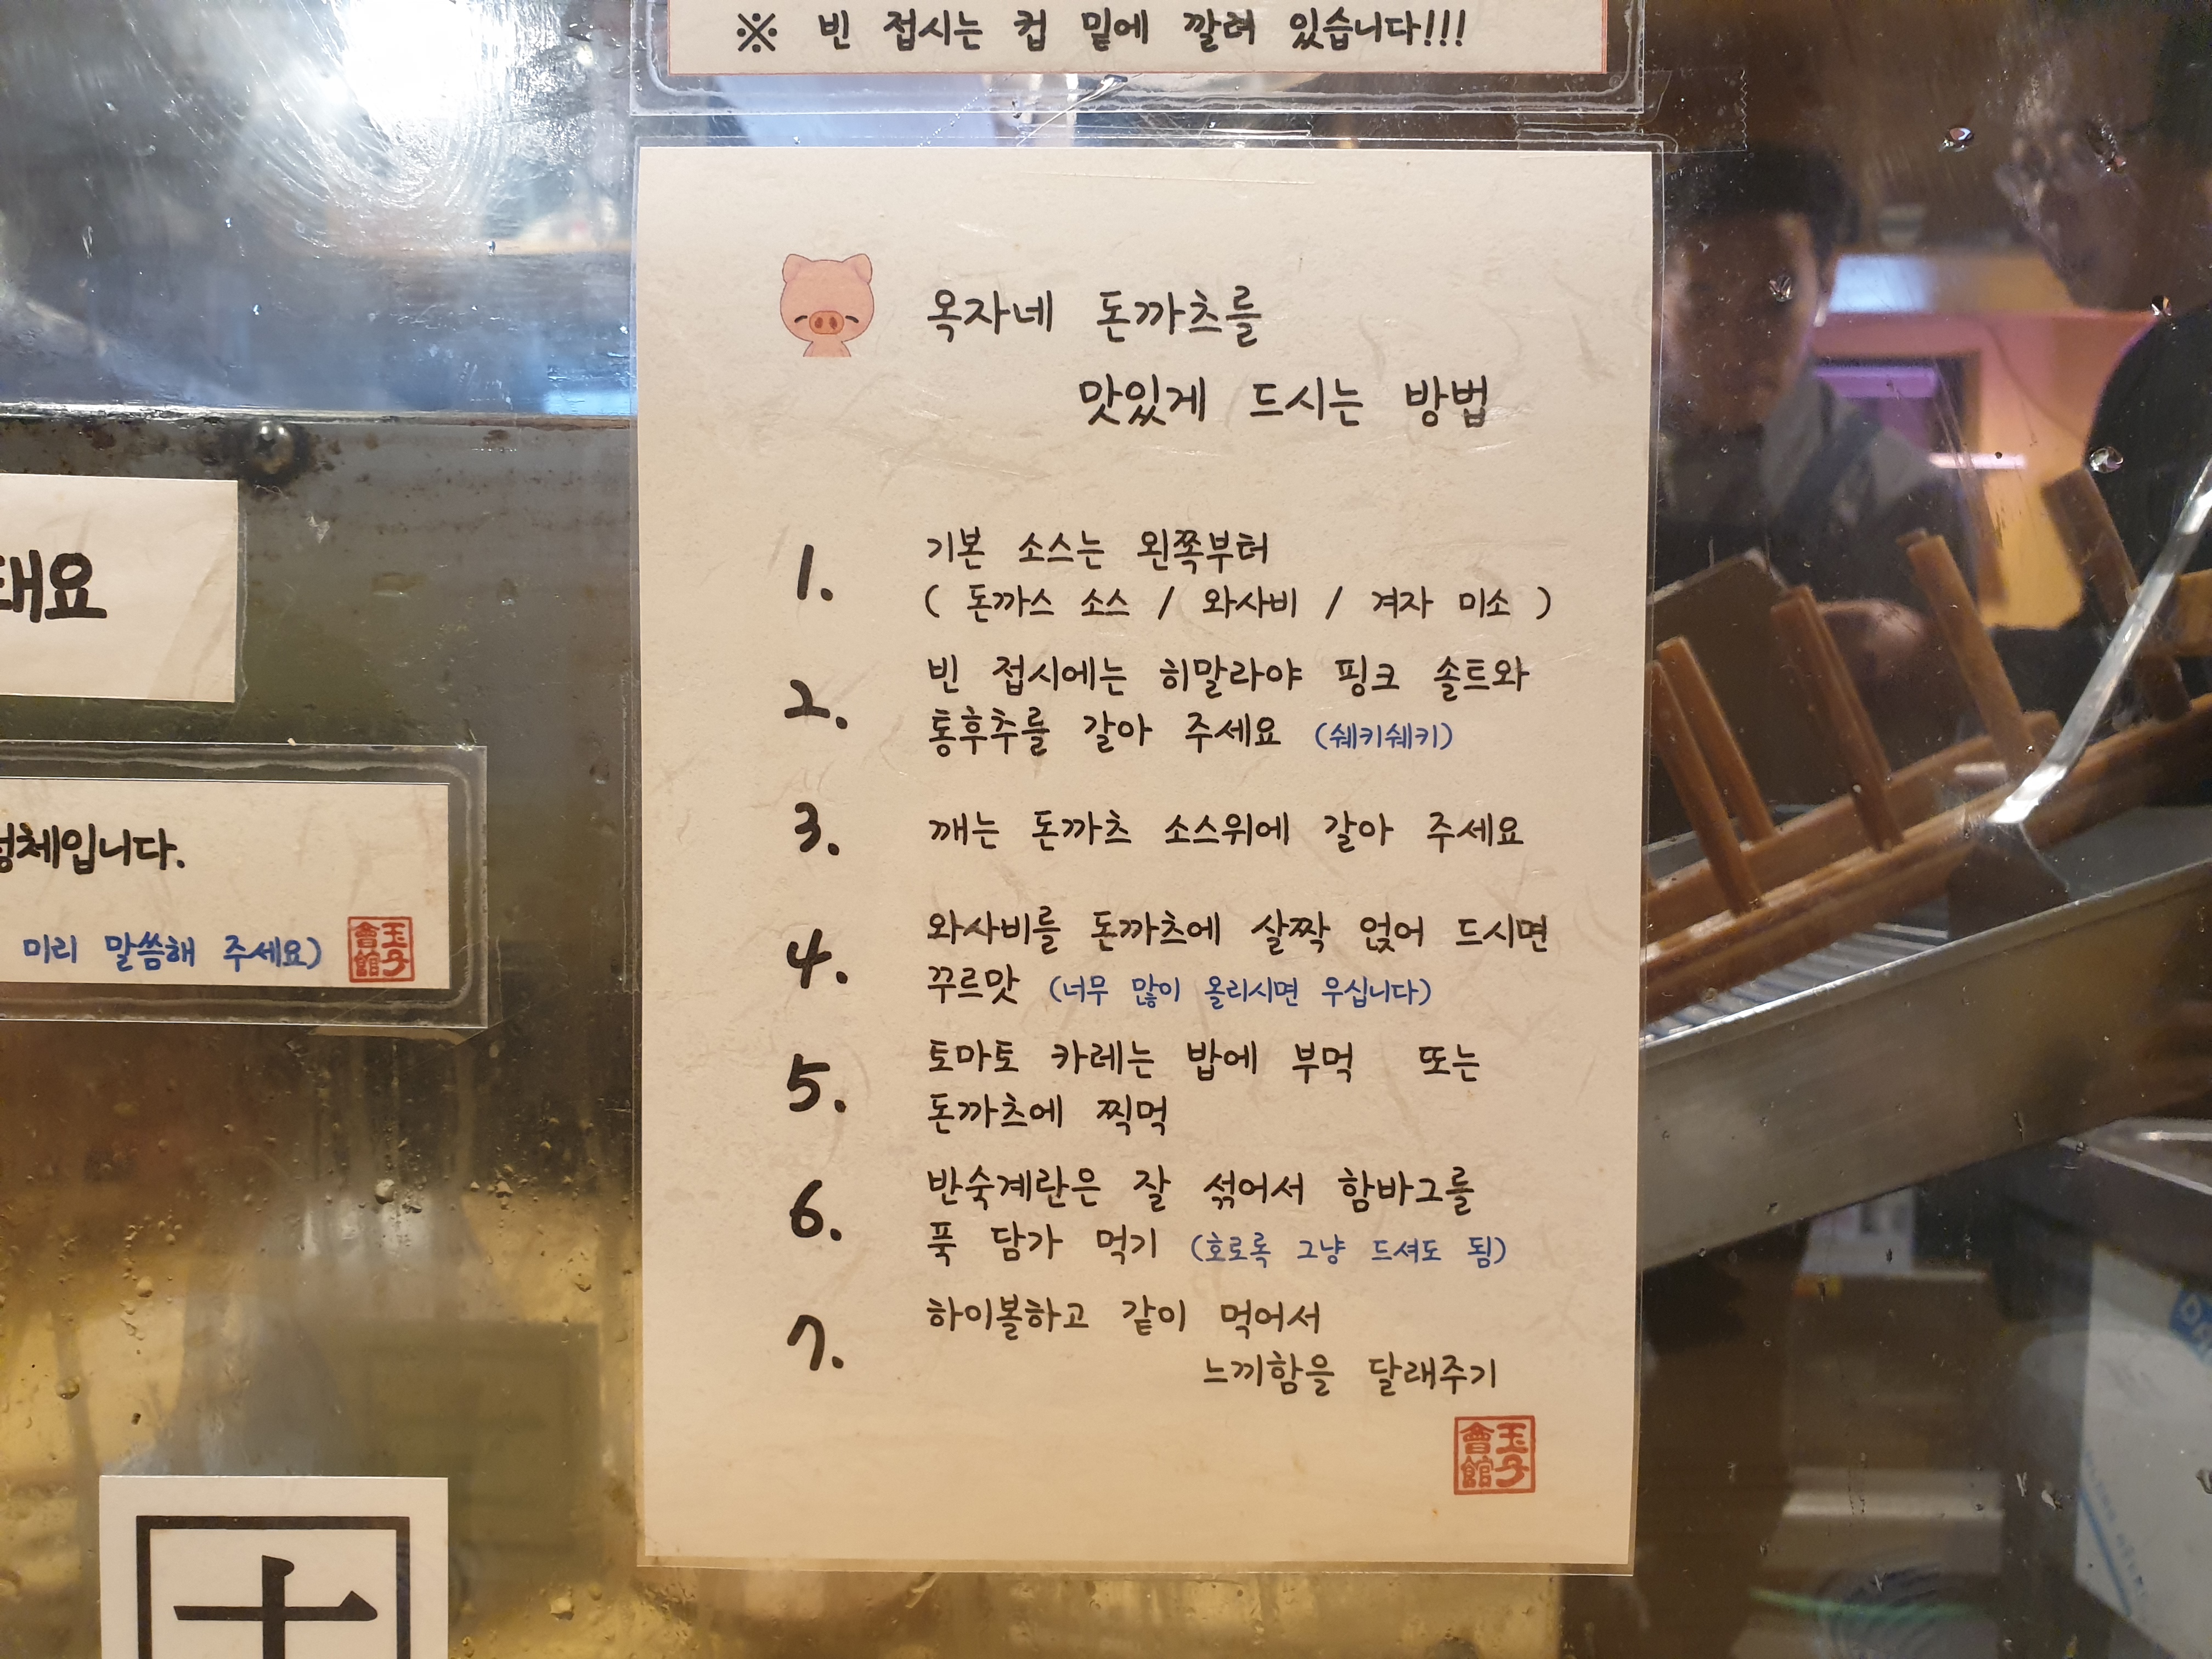 ※ 빈 접시는 컵 밑에 깔려 있습니다!!!
옥자네 돈까츠를
맛있게 드시는 방법
1. 기본 소스는 왼쪽부터
( 돈까스 소스 / 와사비 / 겨자 미소 )
2. 빈 접시에는 히말라야 핑크 솔트와
통후추를 갈아 주세요 (쉐키쉐키)
3. 깨는 돈까츠 소스위에 갈아 주세요
4. 와사비를 돈까츠에 살짝 얹어 드시면
꾸르맛 (너무 많이 올리시면 우십니다)
5. 토마토 카레는 밥에 부먹 또는
돈까츠에 찍먹
6. 반숙계란은 잘 섞어서 함바그를
푹 담가 먹기 (호로록 그냥 드셔도 됨)
7. 하이볼하고 같이 먹어서
느끼함을 달래주기
玉子會館
미리 말씀해 주세요)
玉子會館